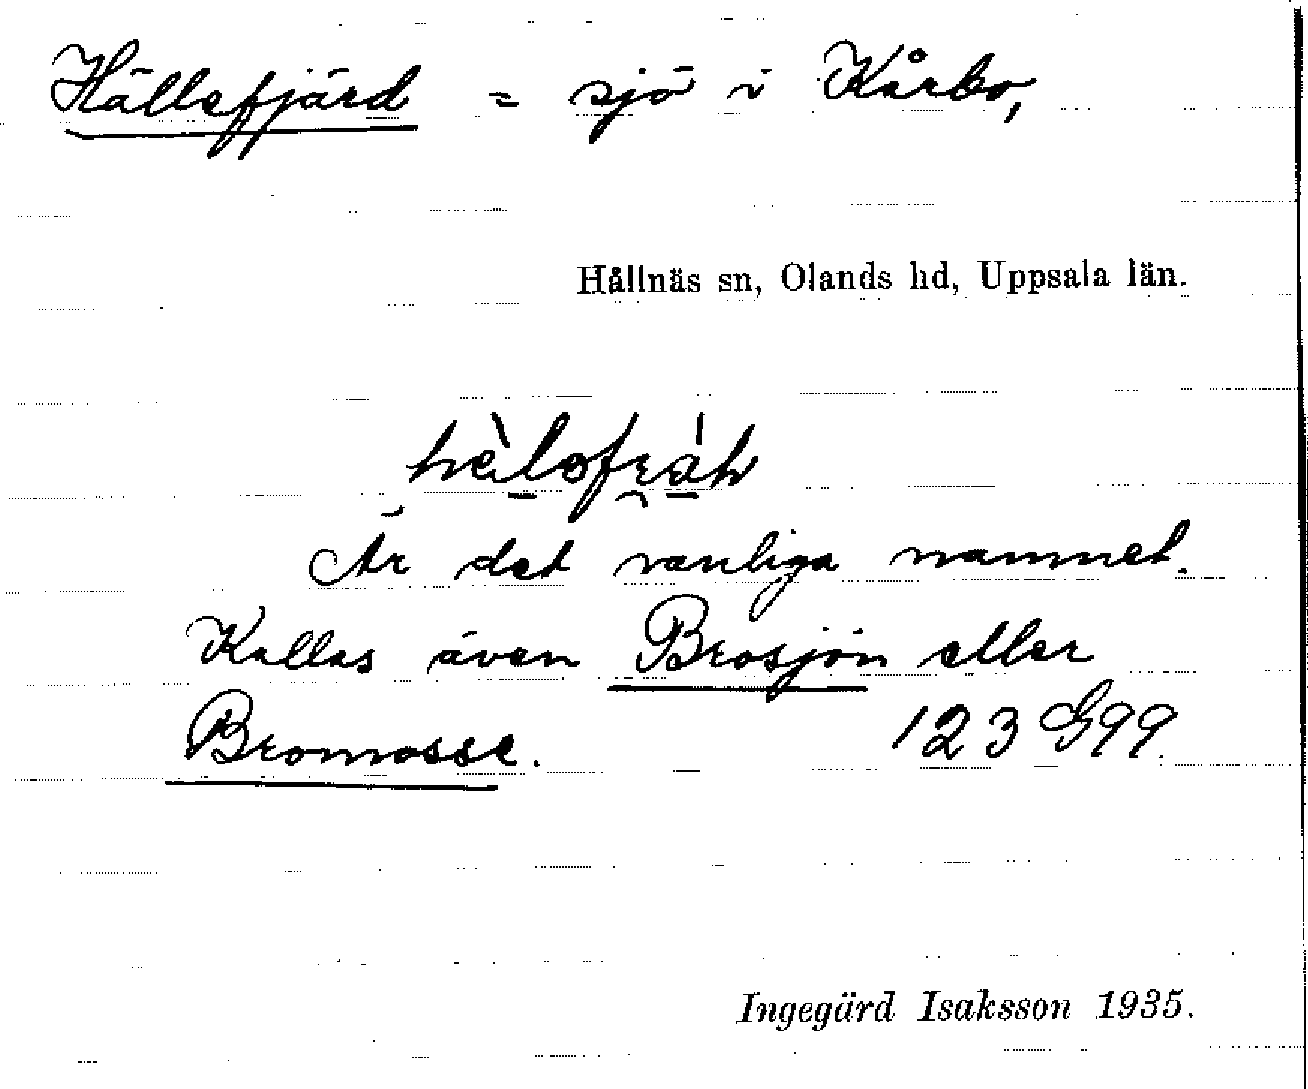 Hällefjärd = sjö i Kårbo,
Hållnäs sn, Olands hd, Uppsala län.
Är det vanliga namnet.
Kallas även Brosjön eller
Bromosse. 123 G99.
Ingegärd Isaksson 1935.